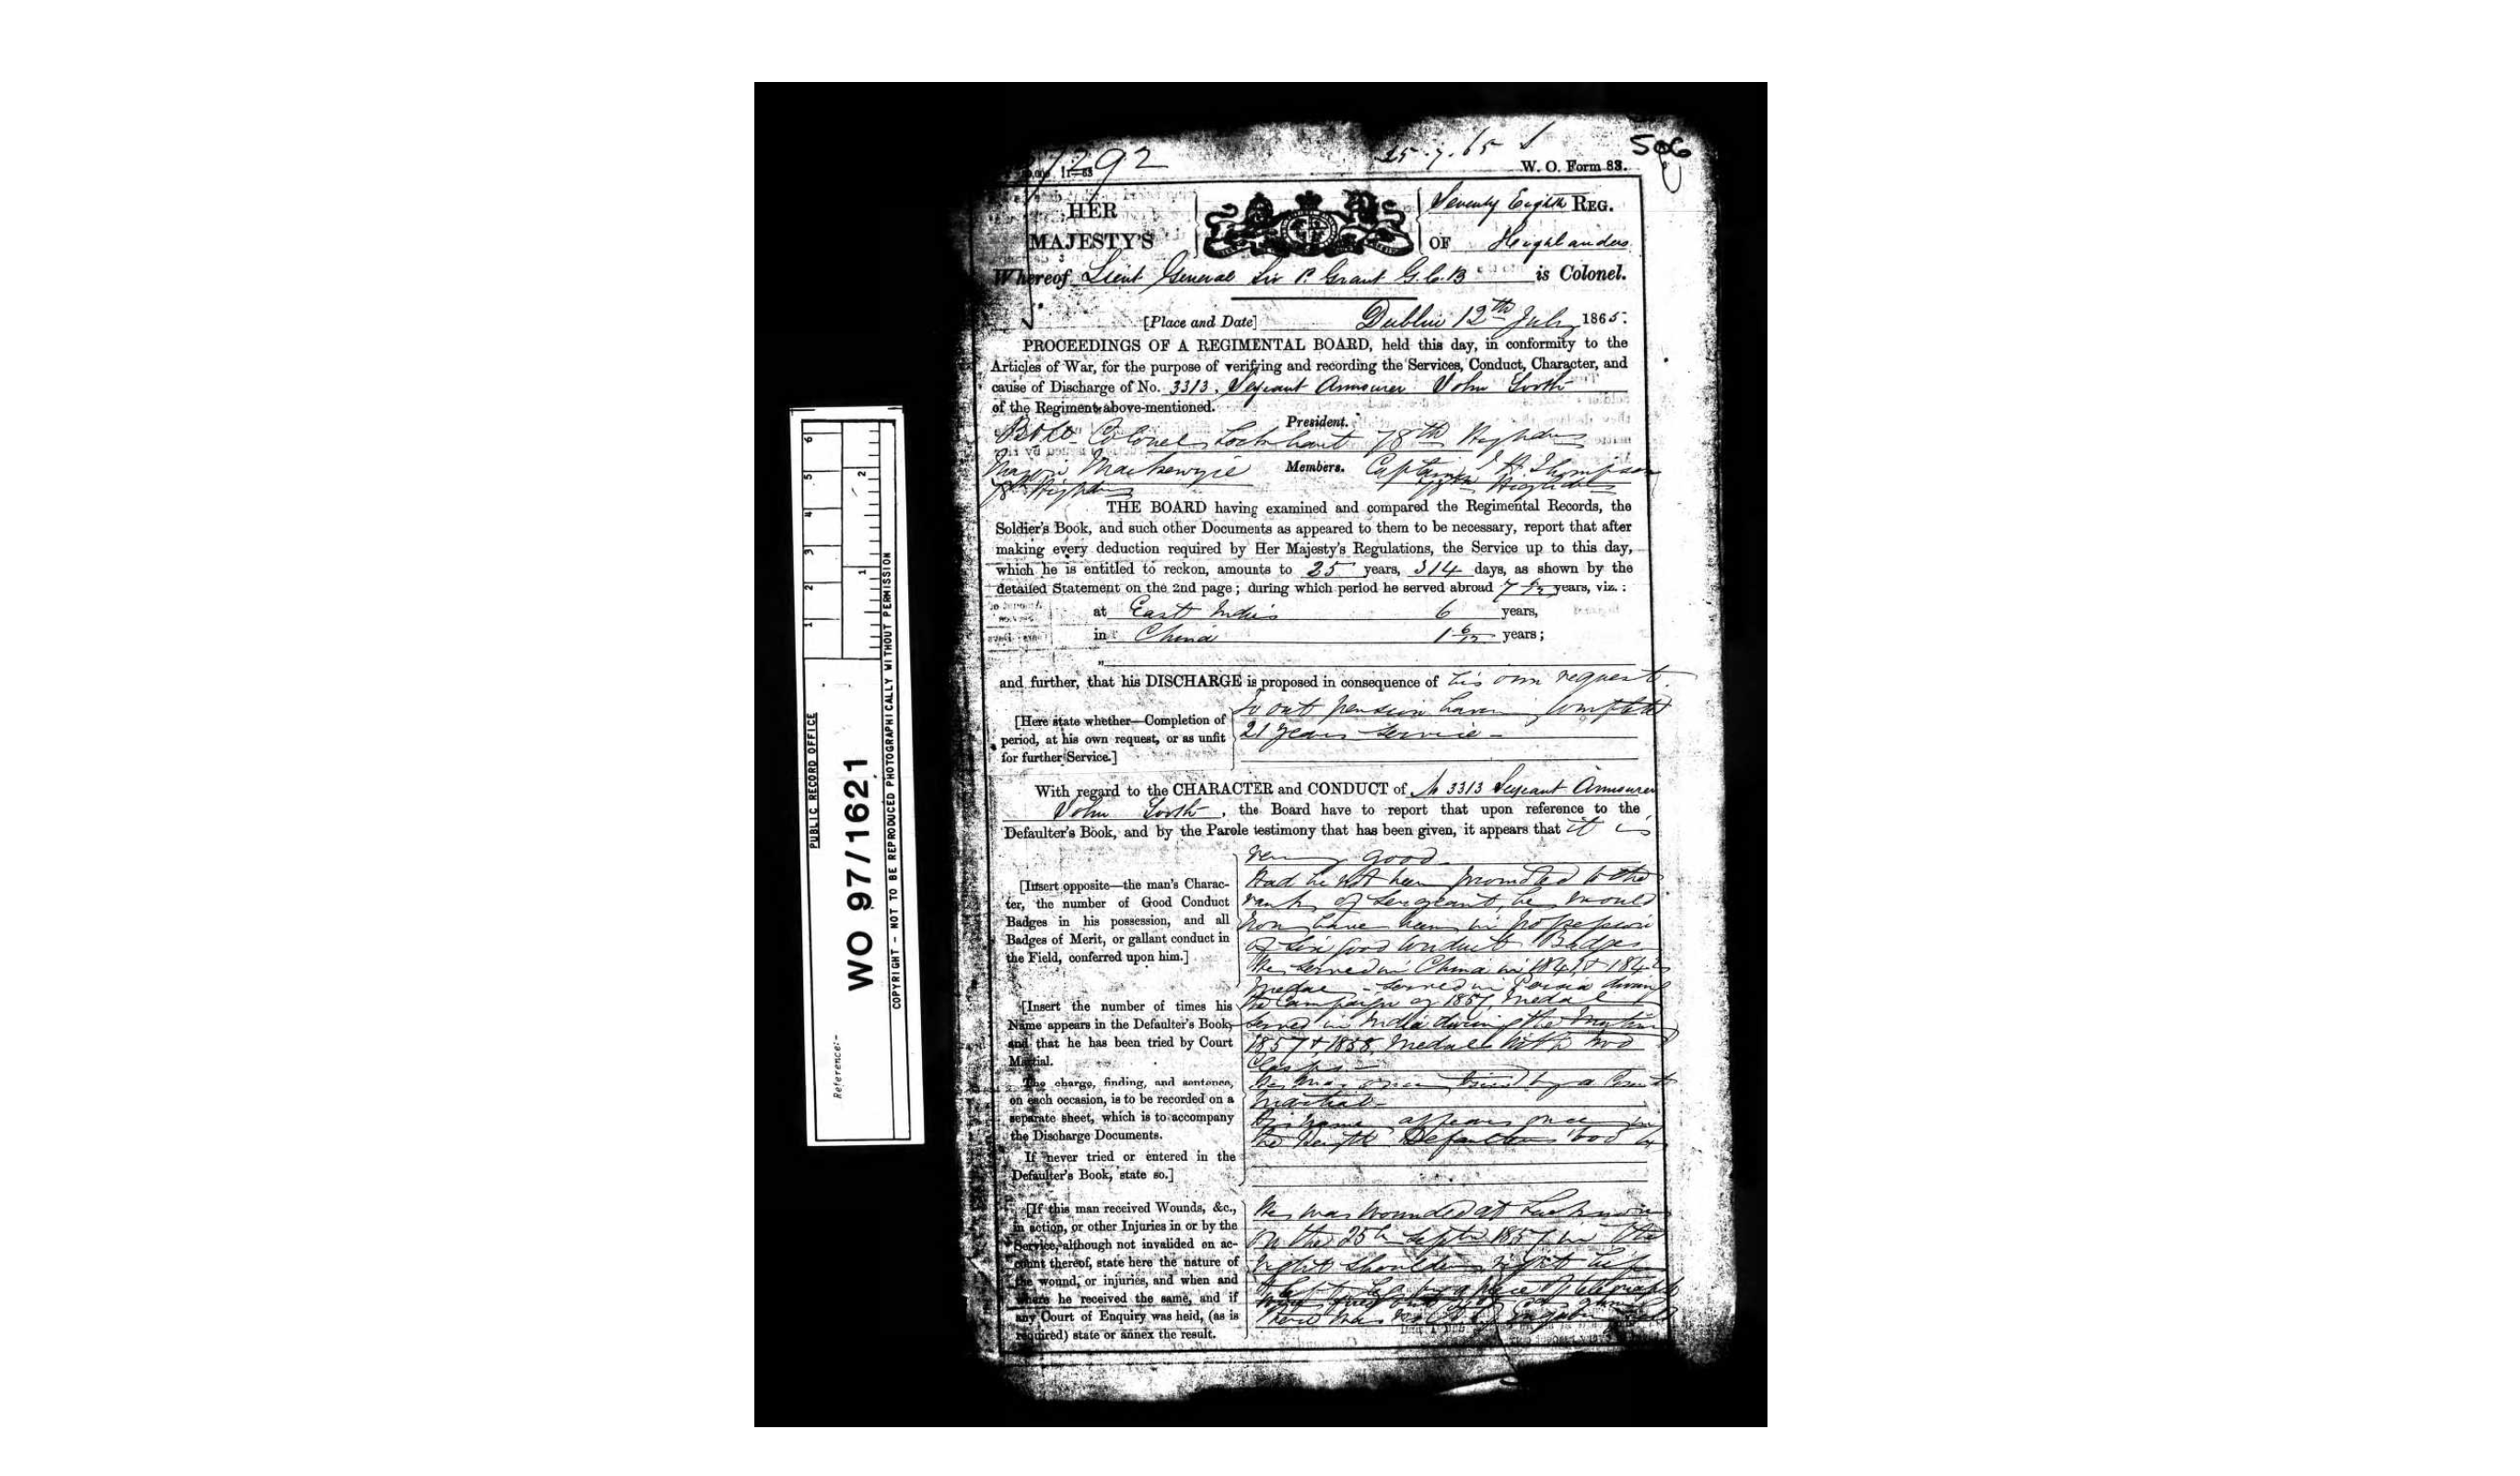 7292
25.7.65
506
W. O. Form 83.
HER
MAJESTY'S
Seventy Eighth REG.
OF Highlanders
Whereof Lieut General Sir P. Grant G.C.B is Colonel.
[Place and Date] Dublin 12th July 1865.
PROCEEDINGS OF A REGIMENTAL BOARD, held this day, in conformity to the
Articles of War, for the purpose of verifying and recording the Services, Conduct, Character, and
cause of Discharge of No. 3313, Serjeant Armourer John
of the Regiment above-mentioned.
President.
Colonel Lockhart 78th Highdrs
Major Mackenzie Members. Captain Thompson
78th Highdrs
THE BOARD having examined and compared the Regimental Records, the
Soldier's Book, and such other Documents as appeared to them to be necessary, report that after
making every deduction required by Her Majesty's Regulations, the Service up to this day,
which he is entitled to reckon, amounts to 25 years, 314 days, as shown by the
detailed Statement on the 2nd page; during which period he served abroad 7 6/12 years, viz.:
at East Indies 6 years,
in China 1 6/12 years;
"
and further, that his DISCHARGE is proposed in consequence of his own request
[Here state whether—Completion of
period, at his own request, or as unfit
for further Service.]
to out pension having completed
21 years service -
With regard to the CHARACTER and CONDUCT of No 3313 Serjeant Armourer
John , the Board have to report that upon reference to the
Defaulter's Book, and by the Parole testimony that has been given, it appears that it is
[Insert opposite—the man's Charac-
ter, the number of Good Conduct
Badges in his possession, and all
Badges of Merit, or gallant conduct in
the Field, conferred upon him.]
very good.
Had he not been promoted to the
rank of Sergeant, he would
now have been in possession
of six good Conduct Badges
He served in China in 1841 & 1842
[Insert the number of times his
Name appears in the Defaulter's Book,
and that he has been tried by Court
Martial.
The charge, finding, and sentence,
on each occasion, is to be recorded on a
separate sheet, which is to accompany
the Discharge Documents.
If never tried or entered in the
Defaulter's Book, state so.]
Medal - served in Persia during
the Campaign of 1857, Medal
served in India during the Mutiny
1857 & 1858, Medal with two
Clasps -
He was once tried by a Court
Martial -
His name appears once in
the Regtl Defaulters book
[If this man received Wounds, &c.,
in action, or other Injuries in or by the
Service, although not invalided on ac-
count thereof, state here the nature of
the wound, or injuries, and when and
where he received the same, and if
any Court of Enquiry was held, (as is
required) state or annex the result.
He was wounded at Lucknow
on the 25th Septr 1857 in the
right shoulder, right hip
& left leg by a piece of telegraph
wire fired out of a gun
There was no
PUBLIC RECORD OFFICE
Reference:-
WO 97/1621
COPYRIGHT - NOT TO BE REPRODUCED PHOTOGRAPHICALLY WITHOUT PERMISSION
1 2 3 4 5 6
1 2